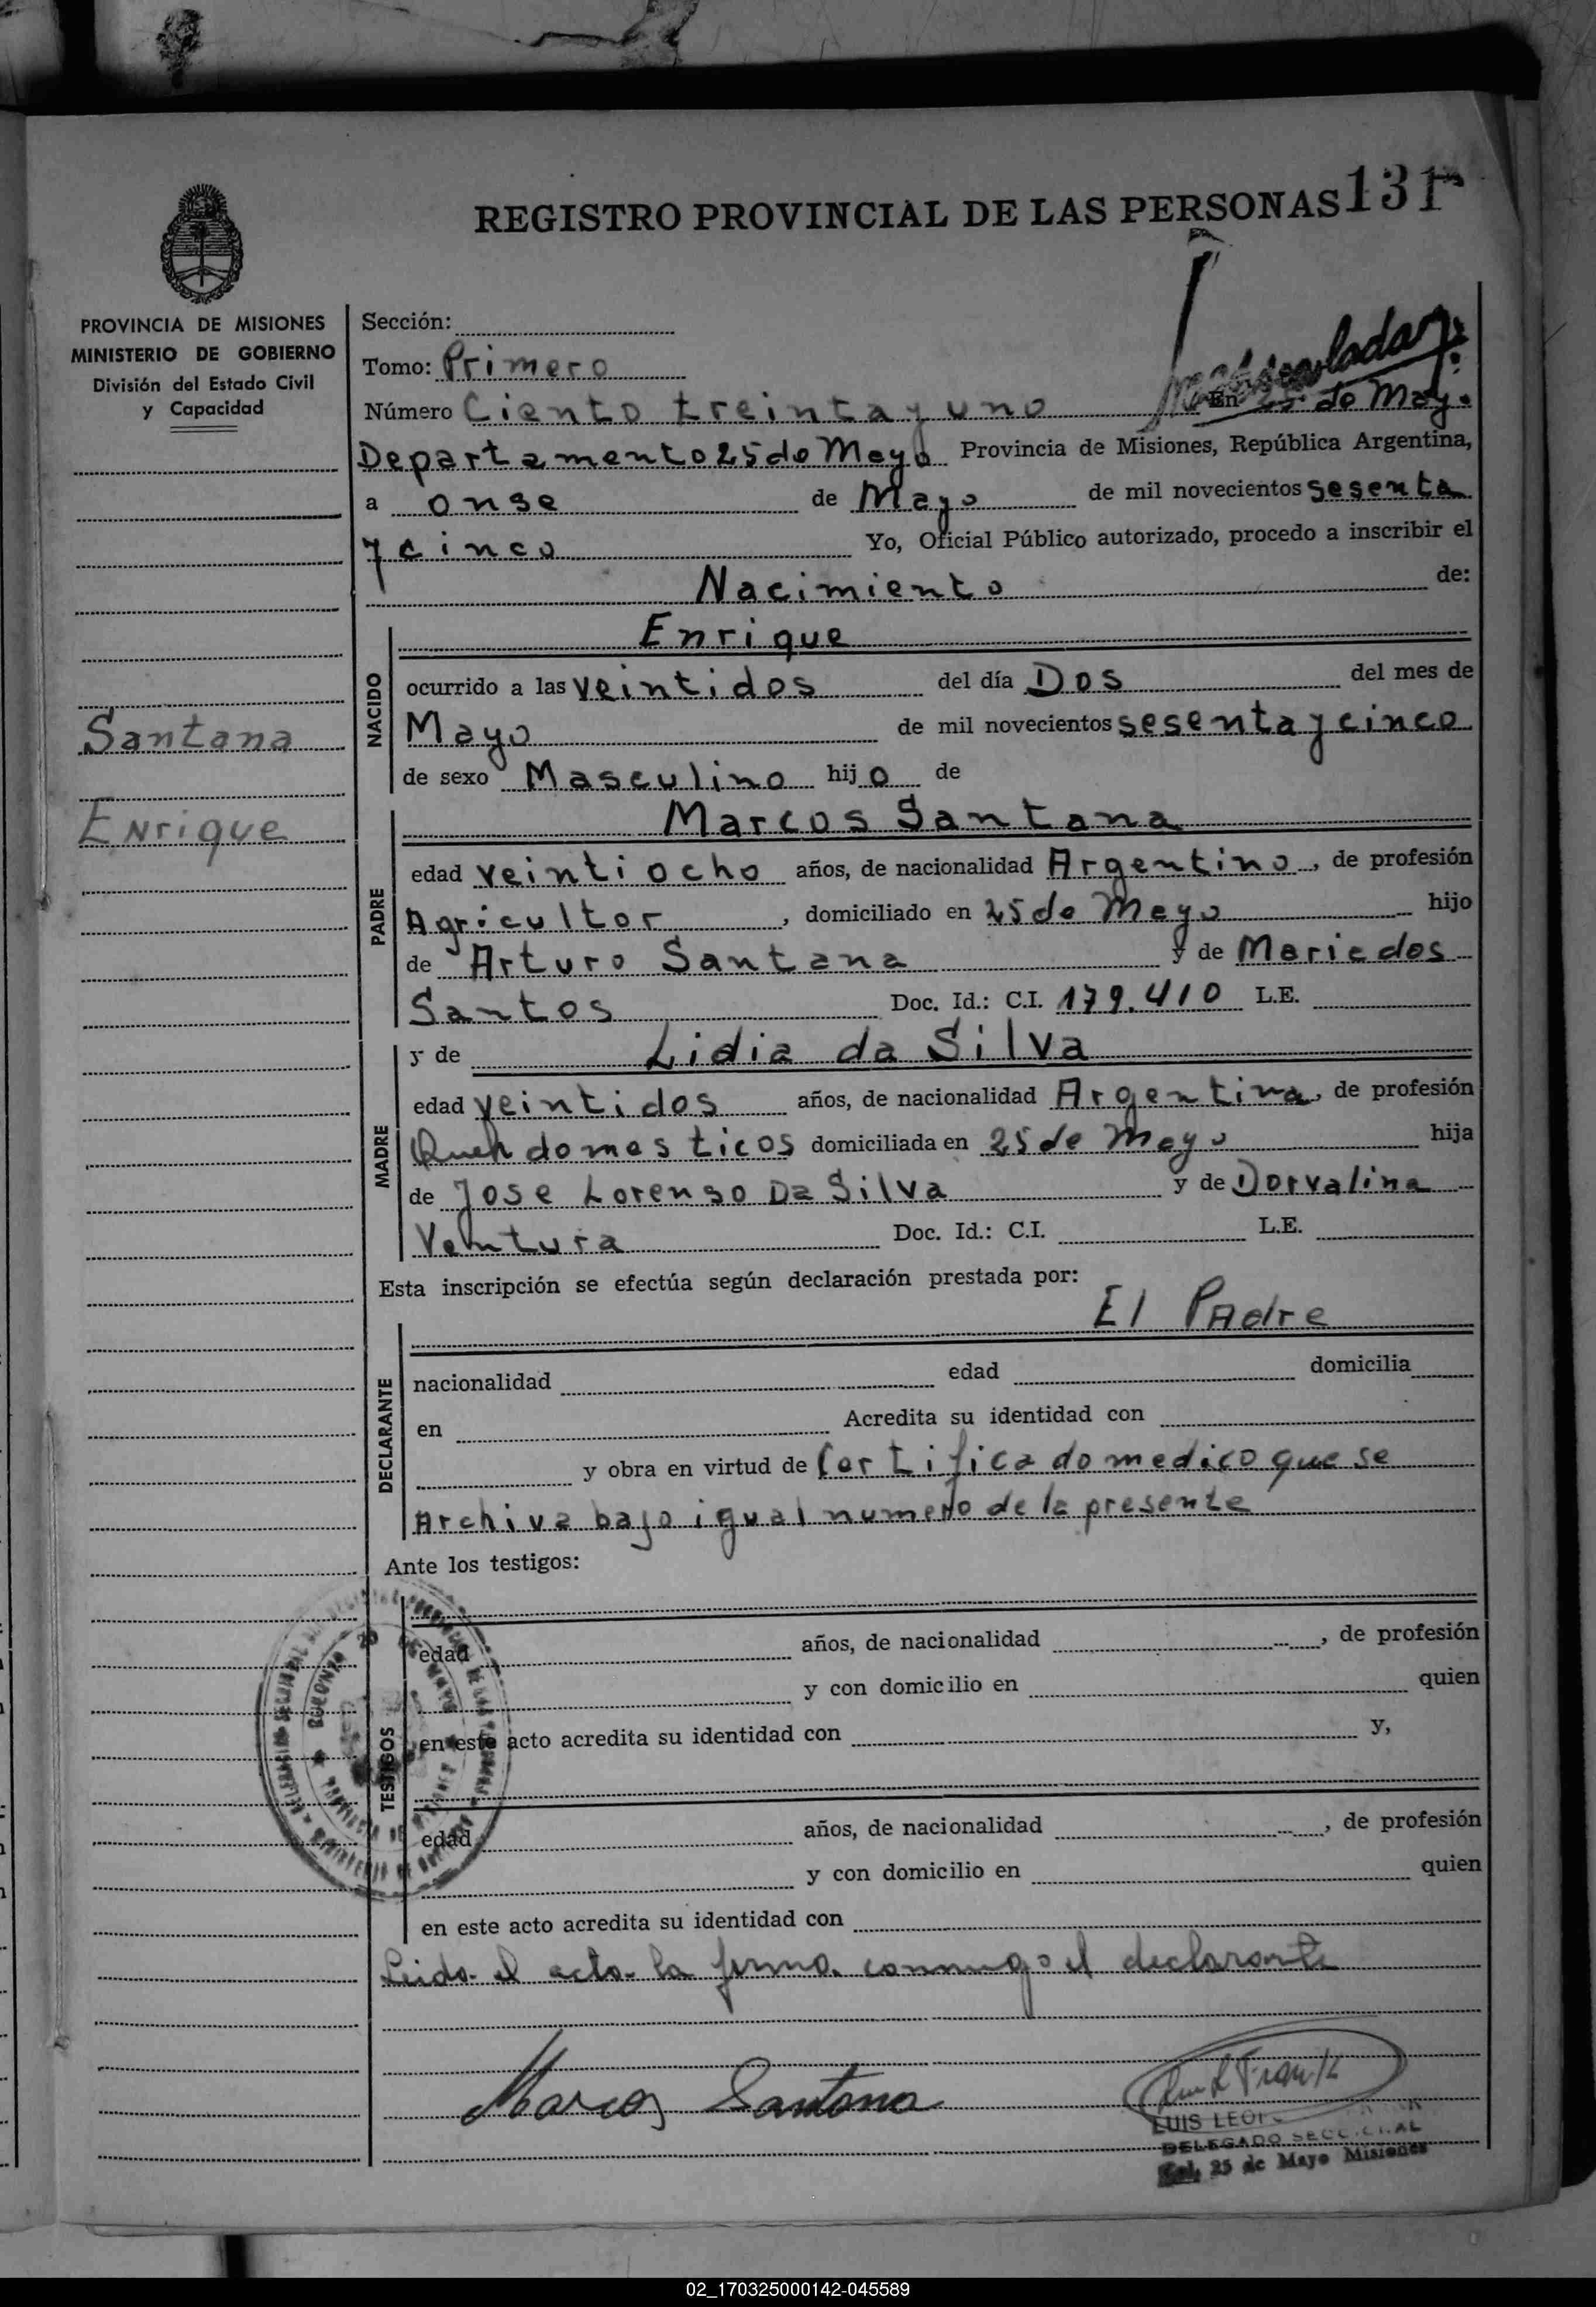 REGISTRO PROVINCIAL DE LAS PERSONAS 131
PROVINCIA DE MISIONES
MINISTERIO DE GOBIERNO
División del Estado Civil
y Capacidad
Santana
Enrique
Sección:
Tomo: Primero
Número Ciento treinta y uno En 25 de May.
Departamento 25 de Mayo Provincia de Misiones, República Argentina,
a onse de Mayo de mil novecientos sesenta
y cinco Yo, Oficial Público autorizado, procedo a inscribir el
Nacimiento de:
NACIDO
Enrique
ocurrido a las veintidos del día Dos del mes de
Mayo de mil novecientos sesenta y cinco
de sexo Masculino hijo de
PADRE
Marcos Santana
edad veintiocho años, de nacionalidad Argentino, de profesión
Agricultor, domiciliado en 25 de Mayo hijo
de Arturo Santana y de Maria dos
Santos Doc. Id.: C.I. 179.410 L.E.
MADRE
y de Lidia da Silva
edad veintidos años, de nacionalidad Argentina, de profesión
Queh domesticos domiciliada en 25 de Mayo hija
de Jose Lorenso Da Silva y de Dorvalina
Ventura Doc. Id.: C.I. L.E.
Esta inscripción se efectúa según declaración prestada por:
El PAdre
DECLARANTE
nacionalidad edad domicilia
en Acredita su identidad con
y obra en virtud de Certificado medico que se
Archiva bajo igual numero de la presente
Ante los testigos:
TESTIGOS
edad años, de nacionalidad , de profesión
y con domicilio en quien
en este acto acredita su identidad con y,
edad años, de nacionalidad , de profesión
y con domicilio en quien
en este acto acredita su identidad con
Leida el acta la firma conmigo el declarante
Marcos Santana
LUIS
DELEGADO SECCIONAL
Col. 25 de Mayo Misiones
02_170325000142-045589